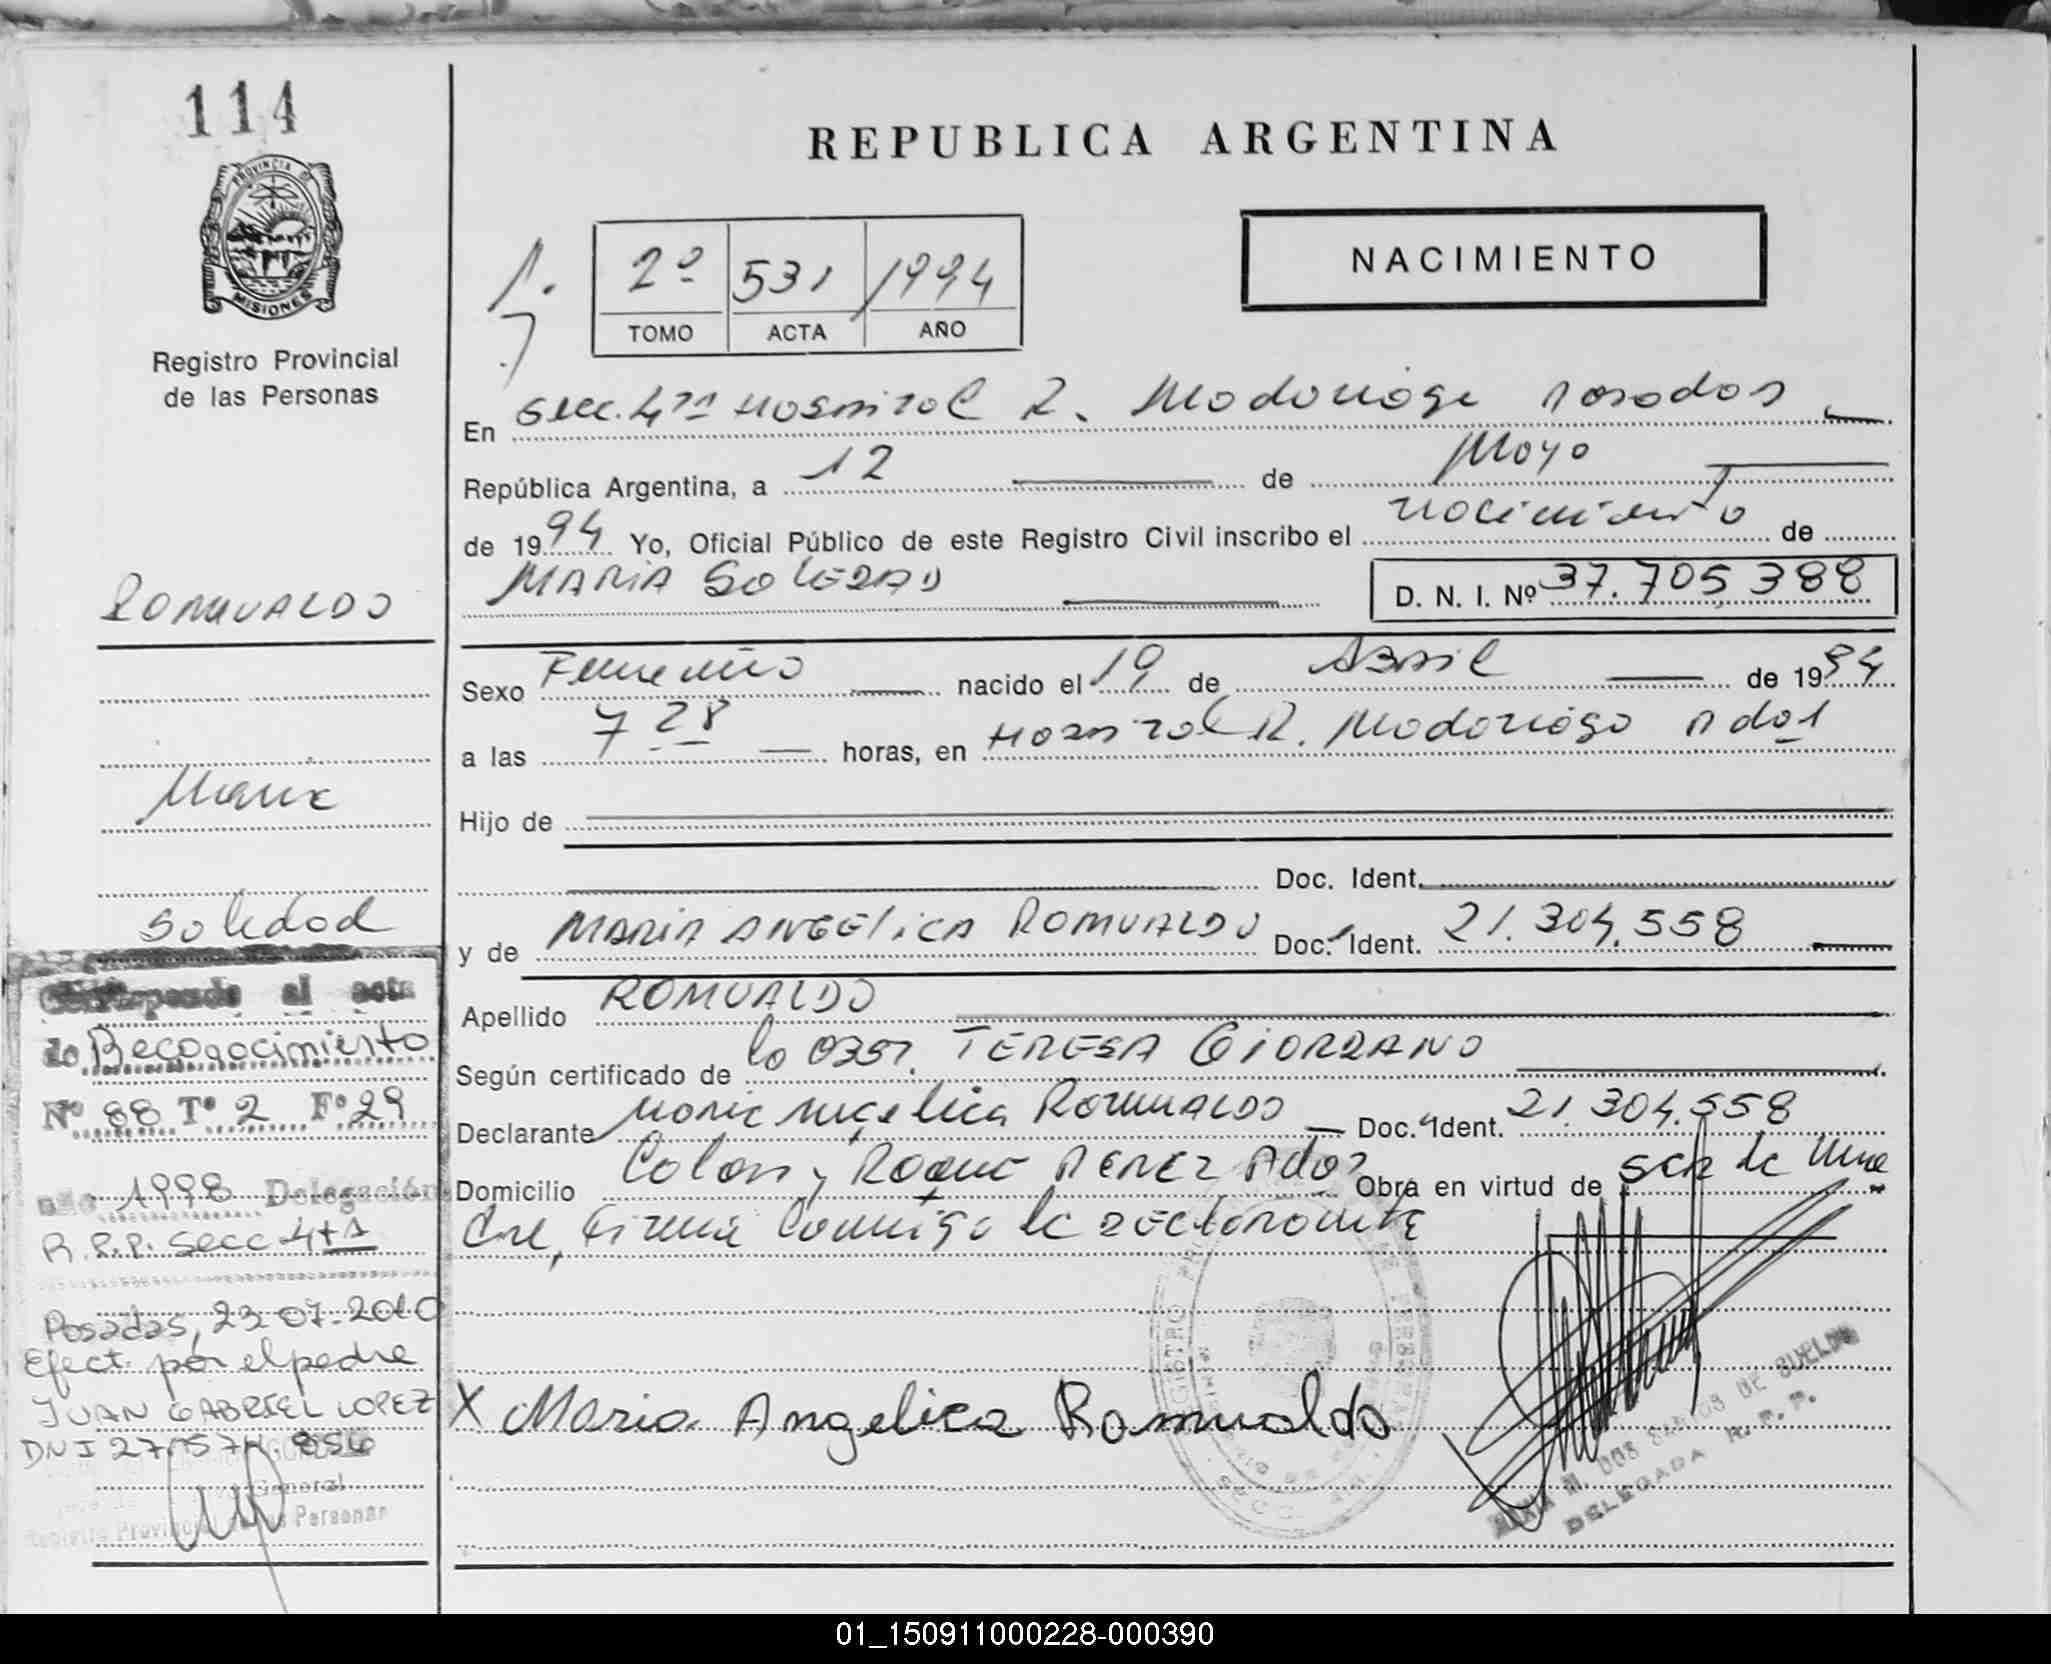 114
PROVINCIA DE
MISIONES
Registro Provincial
de las Personas
REPUBLICA ARGENTINA
NACIMIENTO
2º 531 1994
TOMO ACTA AÑO
En Secc. 4ta Hospital R. Madariaga Posadas
República Argentina, a 12 de Mayo
de 1994 Yo, Oficial Público de este Registro Civil inscribo el nacimiento de
MARIA SOLEDAD D. N. I. Nº 37.705.388
Sexo Femenino nacido el 19 de Abril de 1994
a las 7 28 horas, en Hospital R. Madariaga Pdas
Hijo de
Doc. Ident.
y de MARIA ANGELICA ROMUALDO Doc. Ident. 21.304.558
Apellido ROMUALDO
Según certificado de la Obst. TERESA GIORDANO
Declarante Maria Angelica ROMUALDO Doc. Ident. 21.304.558
Domicilio Colon y Roque PEREZ Pdas Obra en virtud de ser la Ma
dre, Firma Conmigo la declarante
X Maria Angelica Romualdo
DOS SANTOS DE
DELEGADA R. P. P.
ROMUALDO
Maria
Soledad
Corresponde al acta
de Reconocimiento
Nº 88 Tº 2 Fº 29
año 1998 Delegación
R.P.P. Secc 4ta
Posadas, 23-07-2010
Efect. por el padre
JUAN GABRIEL LOPEZ
DNI
General
Registro Provincial de las Personas
01_150911000228-000390